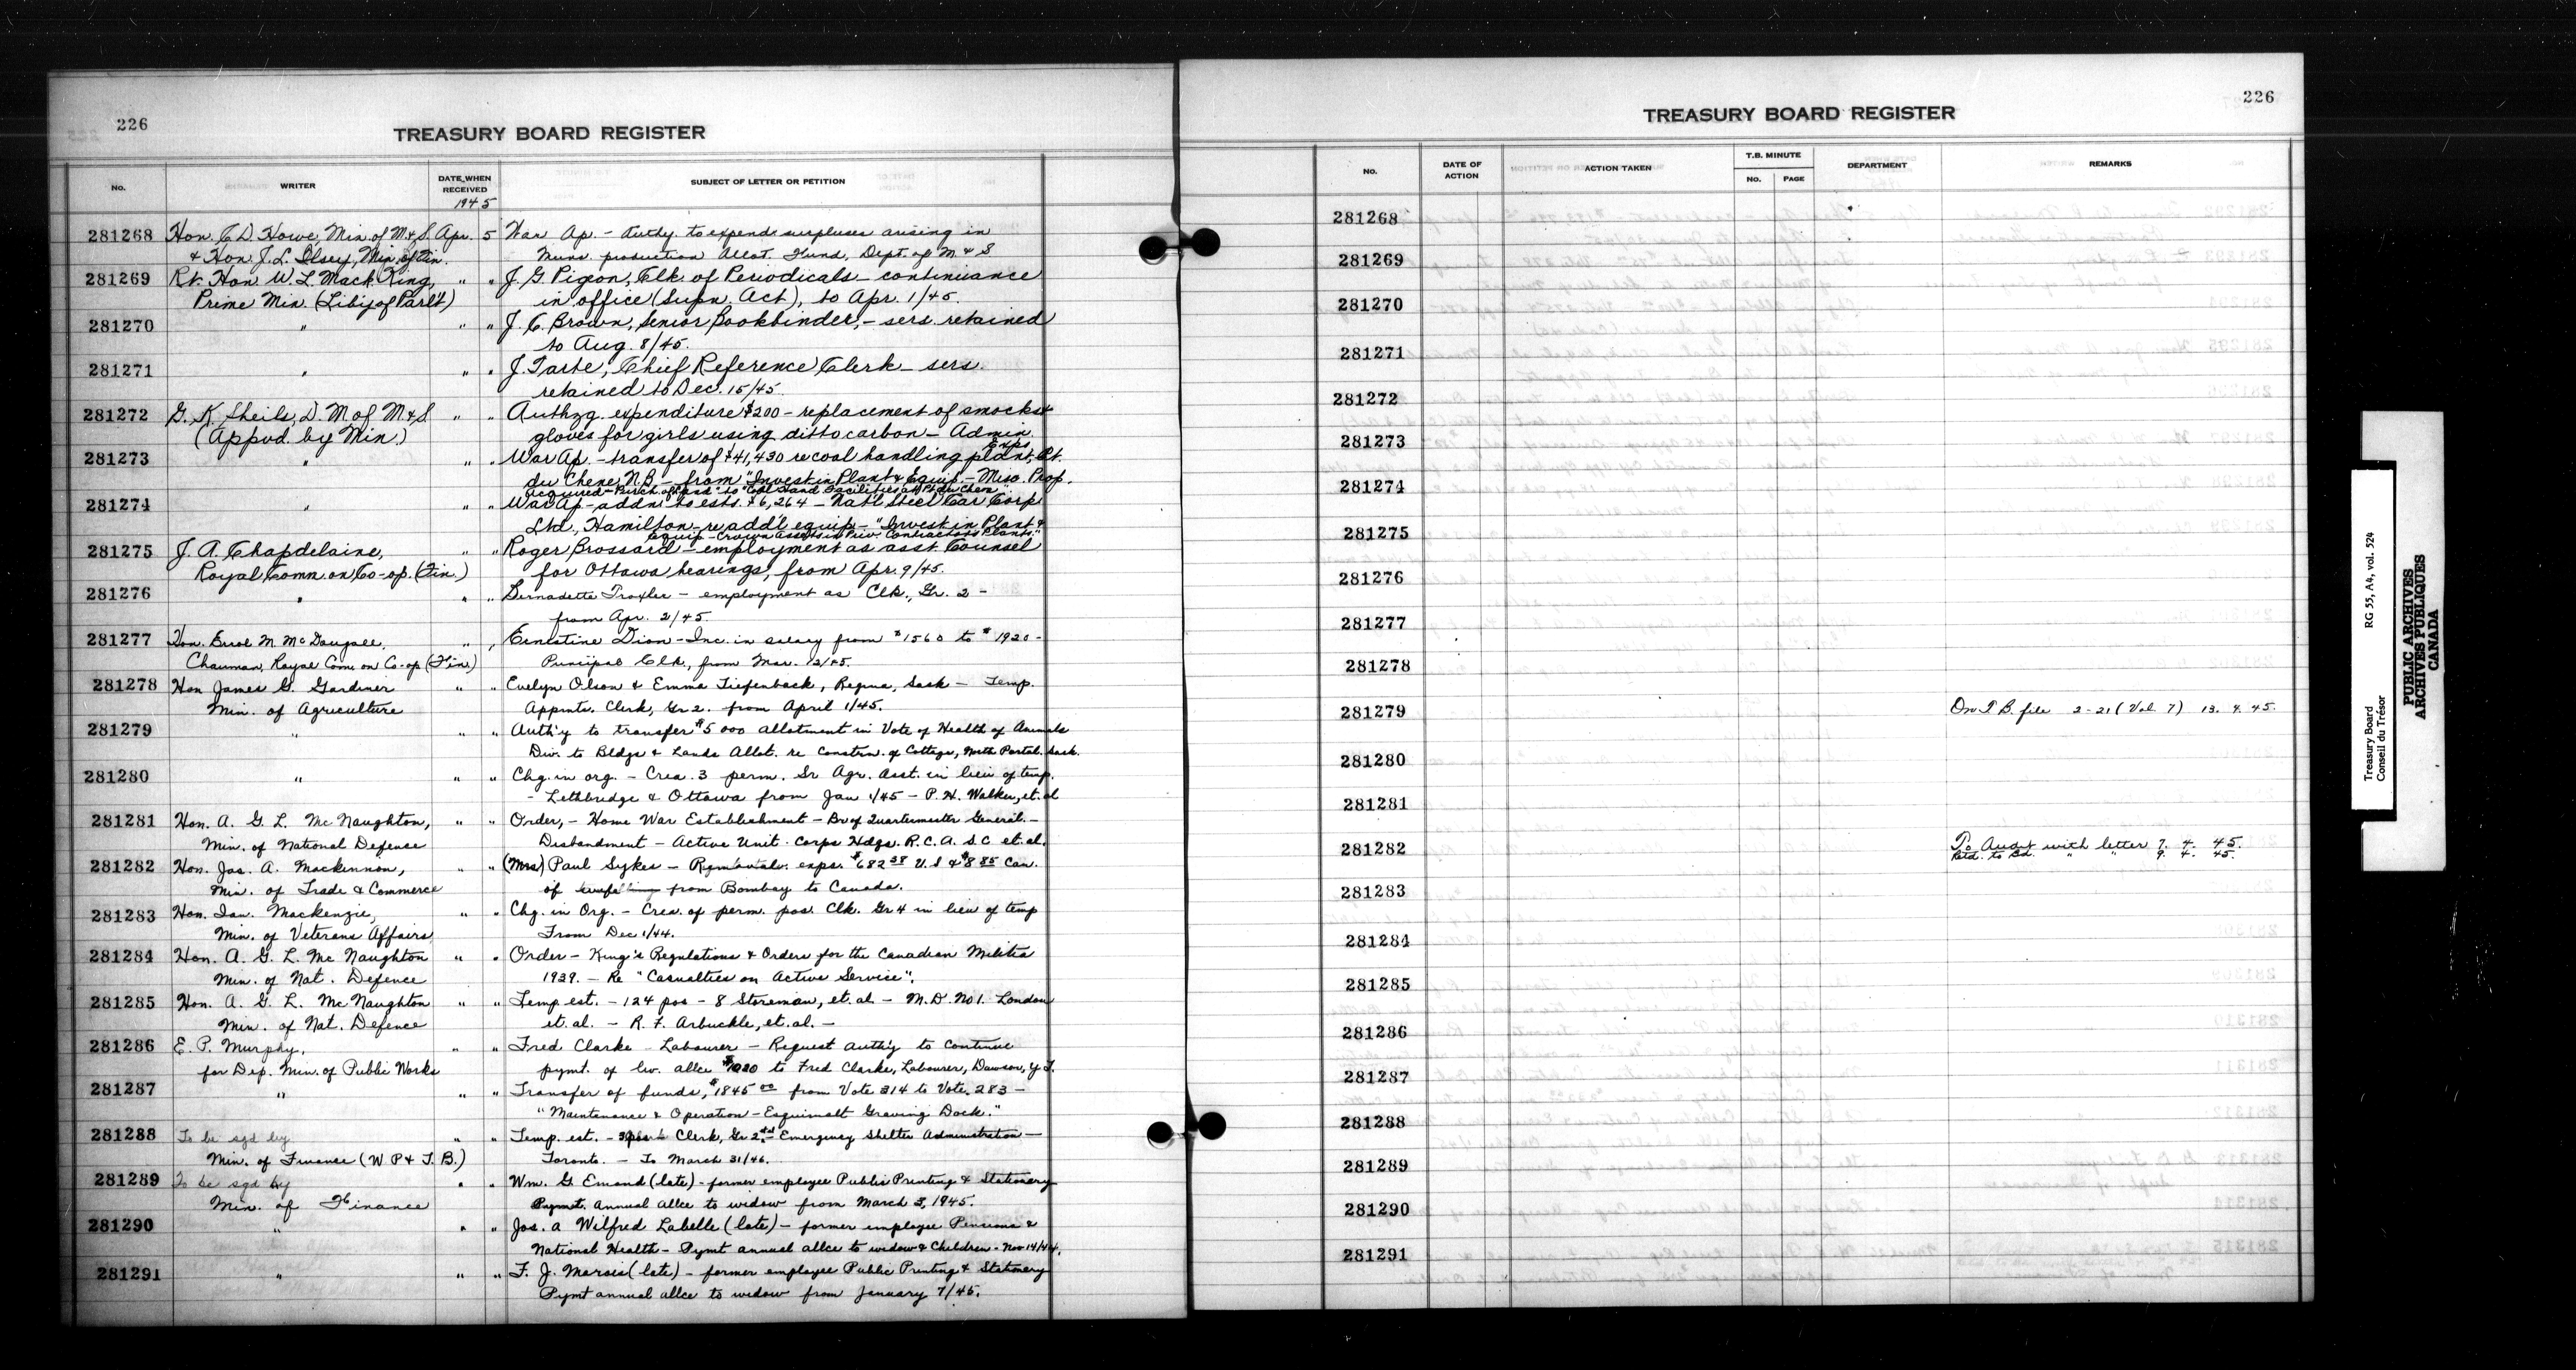 226
TREASURY BOARD REGISTER
No. WRITER DATE WHEN RECEIVED SUBJECT OF LETTER OR PETITION
1945
281268 Hon. C. D. Howe, Min. of M. & S. Apr. 5 War Ap. - Authy. to expend surpluses arising in
& Hon. J. L. Ilsley, Min. of Fin. Muns. production Allot. Fund, Dept. of M & S
281269 Rt. Hon. W. L. Mack. King, " " J. G. Pigeon, Clk. of Periodicals - continuance
Prime Min. (Liby. of Parl't) in office (Supn. Act), to Apr. 1/45.
281270 " " " J. C. Brown, Senior Bookbinder, - sers. retained
to Aug. 8/45.
281271 " " " J. Tarte, Chief Reference Clerk - sers.
retained to Dec. 15/45.
281272 G. K. Sheils, D. M. of M. & S. " " Authzg. expenditure $200 - replacement of smocks &
(Appvd. by Min.) gloves for girls using ditto carbon - Admin. Exps.
281273 " " " War Ap. - transfer of $41,430 re coal handling plant, Pt.
du Chene, N.B. - from "Invest. in Plant & Equip. - Misc. Prop.
acquired - Purch. of Land" to "Coal Hand. Facilities at Pt. du Chene"
281274 " " " War Ap - addns. to ests. $6,264 - Nat'l Steel Car Corp.
Ltd., Hamilton - re addl. equip. - "Invest. in Plant &
Equip. - Crown Assets in Priv. Contractors Plants."
281275 J. A. Chapdelaine, " " Roger Brossard - employment as asst. Counsel
Royal Comn. on Co-op. (Fin.) for Ottawa hearings, from Apr. 9/45.
281276 " " " Bernadette Troxler - employment as Clk., Gr. 2 -
from Apr. 2/45.
281277 Hon. Errol M. McDougall, " " Ernestine Dion - Inc. in salary from $1560 to $1920 -
Chairman, Royal Com. on Co-op (Fin.) Principal Clk., from Mar. 12/45.
281278 Hon James G. Gardiner " " Evelyn Olson & Emma Tiefenback, Regina, Sask - Temp.
Min. of Agriculture Appmts. Clerk, Gr 2. from April 1/45.
281279 " " " Auth'y to transfer $5000 allotment in Vote of Health of Animals
Div. to Bldgs & Lands Allot. re Constrn. of Cottage, North Portal. Sask.
281280 " " " Chg. in org. - Crea. 3 perm. Sr Agr. Asst. in lieu of temp.
- Lethbridge & Ottawa from Jan 1/45 - P. H. Walker, et. al
281281 Hon. A. G. L. McNaughton, " " Order, - Home War Establishment - Br of Quartermaster General. -
Min. of National Defence Disbandment - Active Unit - Corps Hdqs. R.C.A.S.C et. al.
281282 Hon. Jas. A. Mackinnon, " " (Mrs) Paul Sykes - Removal exps. $682.38 U.S & $8.85 Can.
Min. of Trade & Commerce of from Bombay to Canada.
281283 Hon. Ian. Mackenzie, " " Chg. in Org. - Crea. of perm. pos. Clk. Gr 4 in lieu of temp
Min. of Veterans Affairs From Dec 1/44.
281284 Hon. A. G. L. McNaughton " " Order - King's Regulations & Orders for the Canadian Militia
Min. of Nat. Defence 1939. - Re "Casualties on Active Service".
281285 Hon. A. G. L. McNaughton " " Temp. est. - 124 pos - 8 Storeman, et. al - M.D. No 1. London
Min. of Nat. Defence et. al. - R. F. Arbuckle, et. al. -
281286 E. P. Murphy, " " Fred Clarke - Labourer - Request Auth'y to continue
for Dep. Min. of Public Works pymt. of lv. allce to Fred Clarke, Labourer, Dawson, Y.T.
281287 " " " Transfer of funds, $1845.00 from Vote 314 to Vote 283 -
"Maintenance & Operation - Esquimalt Graving Dock."
281288 To be sgd by " " Temp. est. - Clerk, Gr 2 Emergency Shelter Administration -
Min. of Finance (W P & T. B.) Toronto. - To March 31/46.
281289 To be sgd by " " Wm. G. Emond (late) - former employee Public Printing & Stationery
Min. of Finance Pymt. annual allce to widow from March 3, 1945.
281290 " " " Jos. A Wilfred Labelle (late) - former employee Pensions &
National Health - Pymt annual allce to widow & Children - Nov 14/44.
281291 " " " F. J. Marois (late) - former employee Public Printing & Stationery
Pymt annual allce to widow from January 7/45.
226
TREASURY BOARD REGISTER
No. DATE OF ACTION ACTION TAKEN T.B. MINUTE No. PAGE DEPARTMENT REMARKS
281268
281269
281270
281271
281272
281273
281274
281275
281276
281277
281278
281279 On T.B. file 2-21 (Vol. 7) 13. 4. 45.
281280
281281
281282 To Audit with letter 7. 4. 45.
Retd. to Bd. " " 9. 4. 45.
281283
281284
281285
281286
281287
281288
281289
281290
281291
Treasury Board RG 55, A4, vol. 524
Conseil du Trésor
PUBLIC ARCHIVES
ARCHIVES PUBLIQUES
CANADA